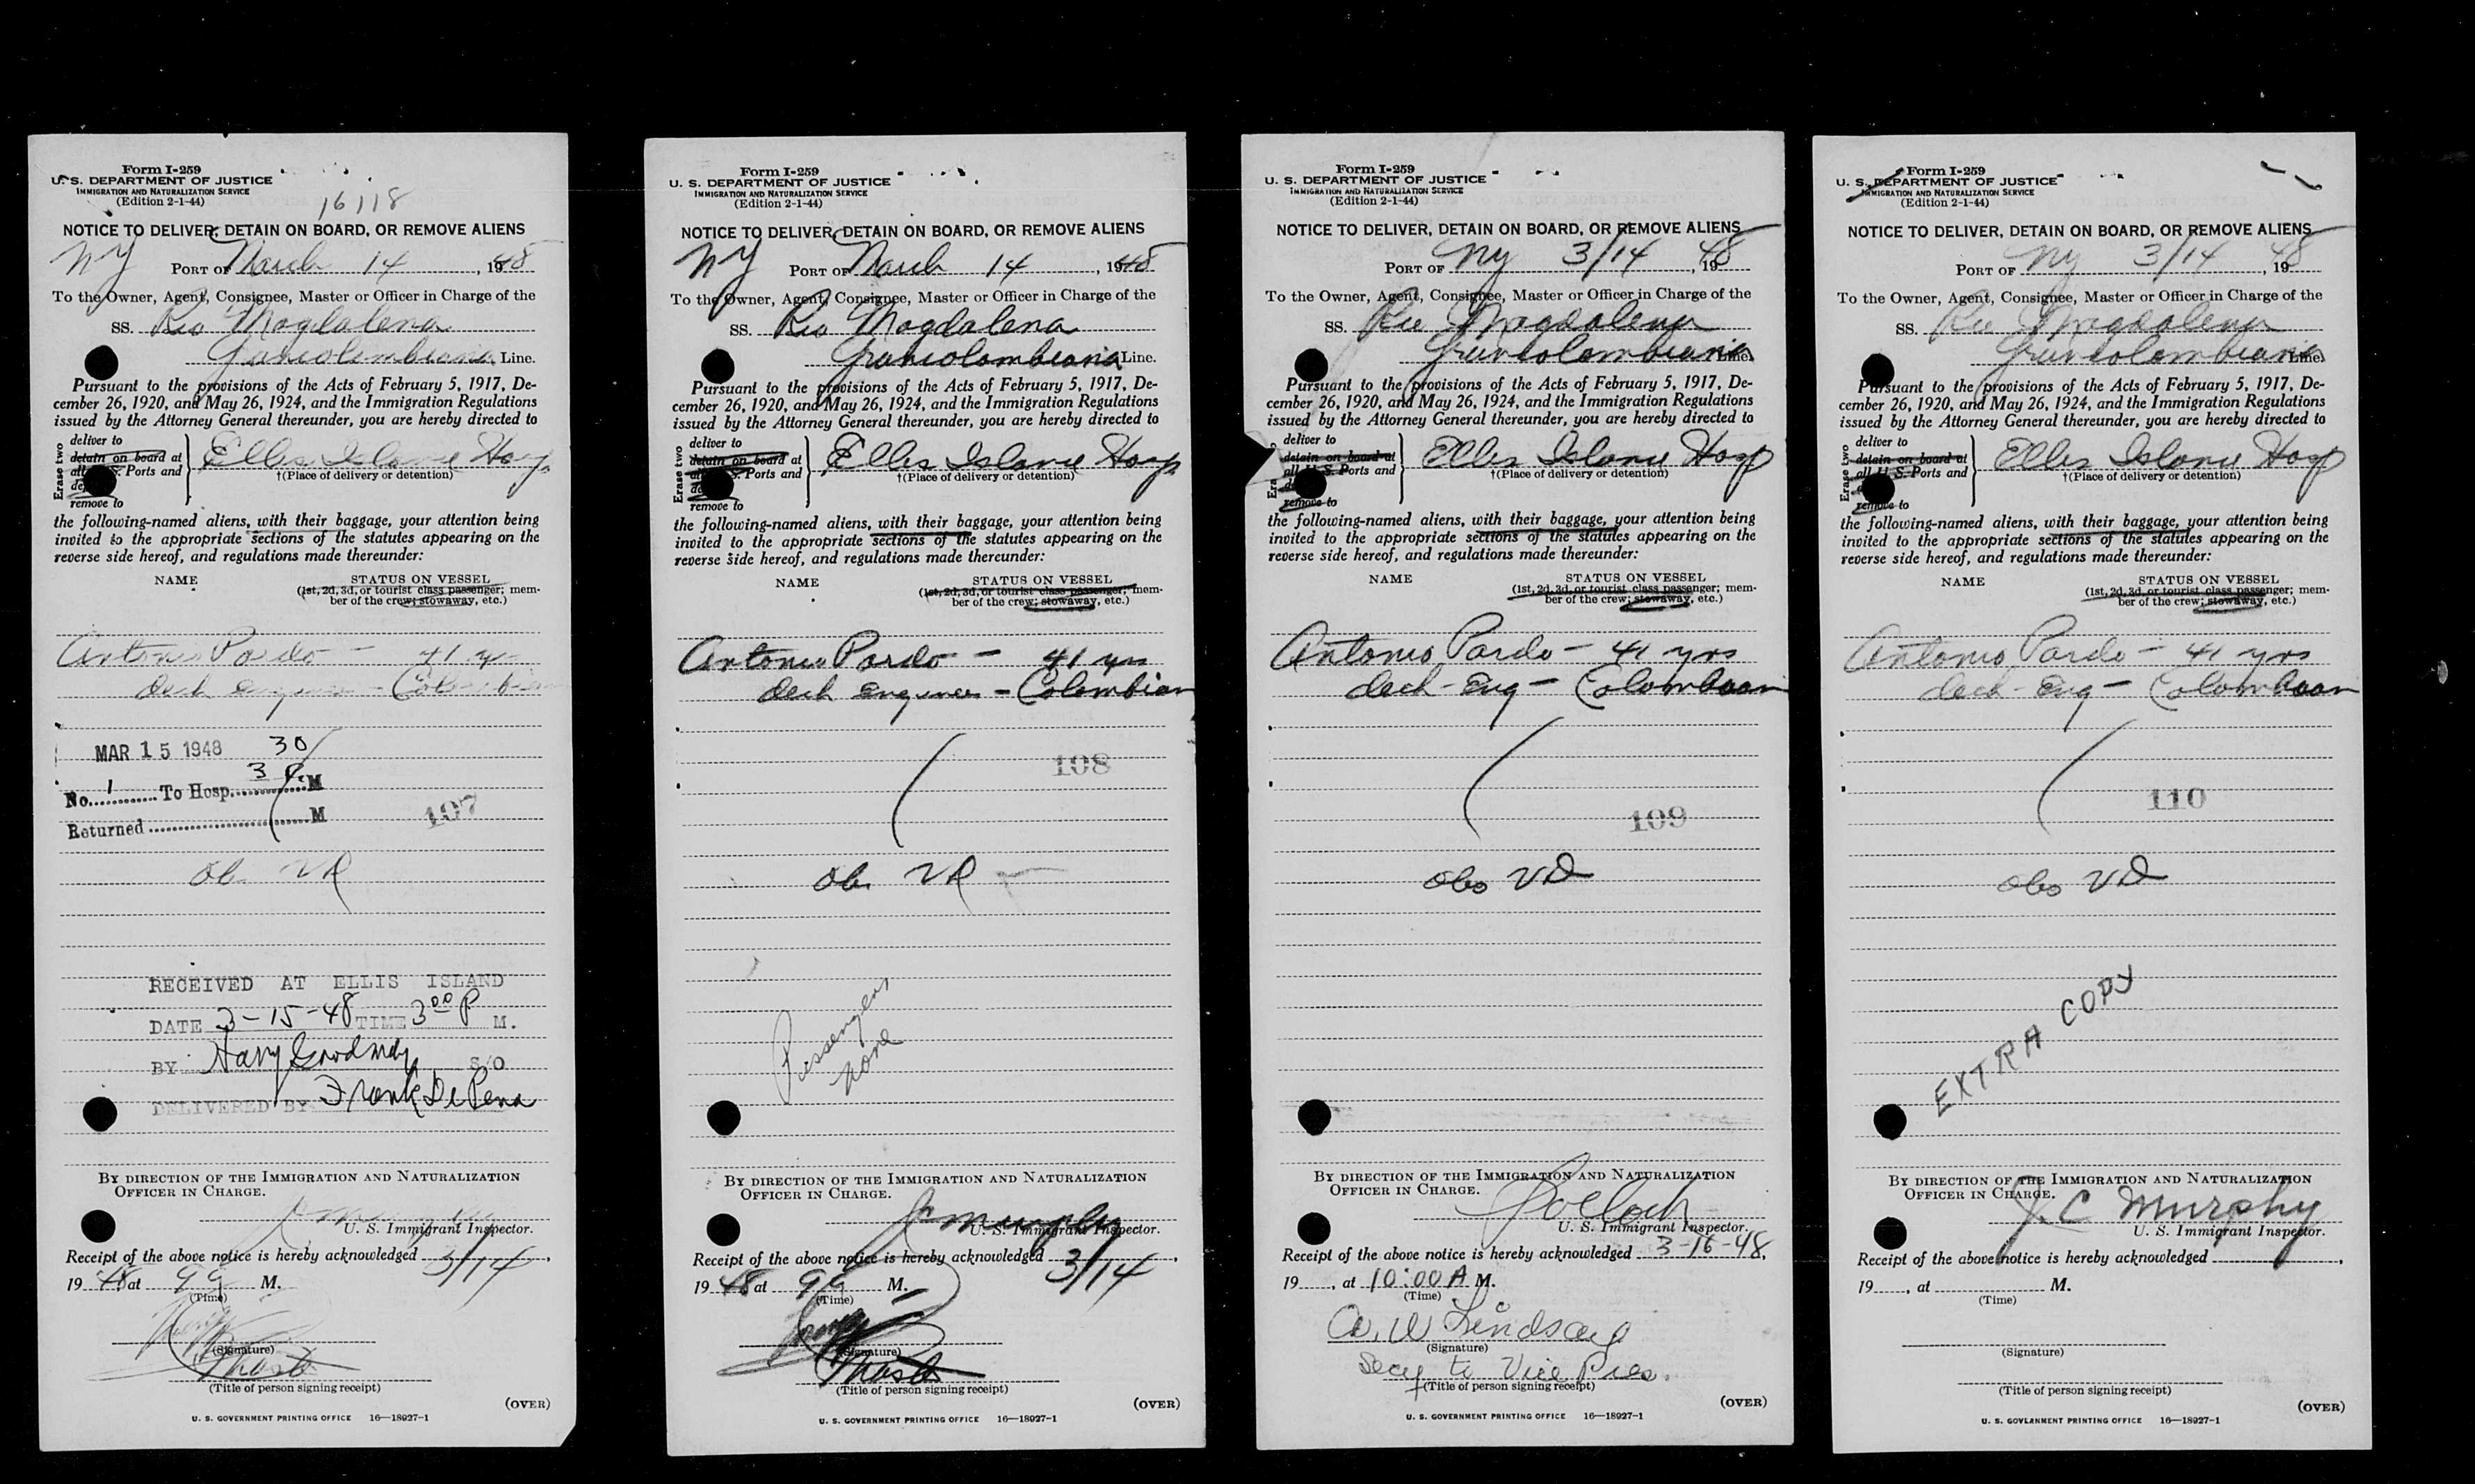 Form I-259
U. S. DEPARTMENT OF JUSTICE
IMMIGRATION AND NATURALIZATION SERVICE
(Edition 2-1-44)
16118
NOTICE TO DELIVER, DETAIN ON BOARD, OR REMOVE ALIENS
NY PORT OF March 14, 1948
To the Owner, Agent, Consignee, Master or Officer in Charge of the
SS. Rio Magdalena
Grancolombiana Line.
Pursuant to the provisions of the Acts of February 5, 1917, De-
cember 26, 1920, and May 26, 1924, and the Immigration Regulations
issued by the Attorney General thereunder, you are hereby directed to
Erase two
deliver to
detain on board at
all U. S. Ports and
remove to
Ellis Island Hosp
†(Place of delivery or detention)
the following-named aliens, with their baggage, your attention being
invited to the appropriate sections of the statutes appearing on the
reverse side hereof, and regulations made thereunder:
NAME STATUS ON VESSEL
(1st, 2d, 3d, or tourist class passenger; mem-
ber of the crew; stowaway, etc.)
Antonio Pardo - 41 yrs
deck engineer - Colombian
MAR 15 1948
No. 1 To Hosp. 3 30 P. M
Returned M
107
RECEIVED AT ELLIS ISLAND
DATE 3-15-48 TIME 3 00 P M.
BY Harry Goodman S/O
DELIVERED BY Frank De Pena
BY DIRECTION OF THE IMMIGRATION AND NATURALIZATION
OFFICER IN CHARGE.
U. S. Immigrant Inspector.
Receipt of the above notice is hereby acknowledged 3/14,
1948 at 9 a M.
(Time)
(Signature)
(Title of person signing receipt)
(OVER)
U. S. GOVERNMENT PRINTING OFFICE 16—18927-1
Form I-259
U. S. DEPARTMENT OF JUSTICE
IMMIGRATION AND NATURALIZATION SERVICE
(Edition 2-1-44)
NOTICE TO DELIVER, DETAIN ON BOARD, OR REMOVE ALIENS
NY PORT OF March 14, 1948
To the Owner, Agent, Consignee, Master or Officer in Charge of the
SS. Rio Magdalena
Grancolombiana Line.
Pursuant to the provisions of the Acts of February 5, 1917, De-
cember 26, 1920, and May 26, 1924, and the Immigration Regulations
issued by the Attorney General thereunder, you are hereby directed to
Erase two
deliver to
detain on board at
all U. S. Ports and
remove to
Ellis Island Hosp
†(Place of delivery or detention)
the following-named aliens, with their baggage, your attention being
invited to the appropriate sections of the statutes appearing on the
reverse side hereof, and regulations made thereunder:
NAME STATUS ON VESSEL
(1st, 2d, 3d, or tourist class passenger; mem-
ber of the crew; stowaway, etc.)
Antonio Pardo - 41 yrs
deck engineer - Colombian
108
Passengers
None
BY DIRECTION OF THE IMMIGRATION AND NATURALIZATION
OFFICER IN CHARGE.
J C Murphy
U. S. Immigrant Inspector.
Receipt of the above notice is hereby acknowledged 3/14,
1948 at 9 a M.
(Time)
(Signature)
Master
(Title of person signing receipt)
(OVER)
U. S. GOVERNMENT PRINTING OFFICE 16—18927-1
Form I-259
U. S. DEPARTMENT OF JUSTICE
IMMIGRATION AND NATURALIZATION SERVICE
(Edition 2-1-44)
NOTICE TO DELIVER, DETAIN ON BOARD, OR REMOVE ALIENS
PORT OF NY 3/14, 1948
To the Owner, Agent, Consignee, Master or Officer in Charge of the
SS. Rio Magdalena
Grancolombiana Line.
Pursuant to the provisions of the Acts of February 5, 1917, De-
cember 26, 1920, and May 26, 1924, and the Immigration Regulations
issued by the Attorney General thereunder, you are hereby directed to
deliver to
detain on board at
all U. S. Ports and
remove to
Ellis Island Hosp
†(Place of delivery or detention)
the following-named aliens, with their baggage, your attention being
invited to the appropriate sections of the statutes appearing on the
reverse side hereof, and regulations made thereunder:
NAME STATUS ON VESSEL
(1st, 2d, 3d, or tourist class passenger; mem-
ber of the crew; stowaway, etc.)
Antonio Pardo - 41 yrs
deck - Eng - Colombian
109
Obs VD
BY DIRECTION OF THE IMMIGRATION AND NATURALIZATION
OFFICER IN CHARGE.
U. S. Immigrant Inspector.
Receipt of the above notice is hereby acknowledged 3-16-48,
19, at 10:00 A M.
(Time)
A. W Lindsay
(Signature)
Secy to Vice Pres.
†(Title of person signing receipt)
(OVER)
U. S. GOVERNMENT PRINTING OFFICE 16—18927-1
Form I-259
U. S. DEPARTMENT OF JUSTICE
IMMIGRATION AND NATURALIZATION SERVICE
(Edition 2-1-44)
NOTICE TO DELIVER, DETAIN ON BOARD, OR REMOVE ALIENS
PORT OF NY 3/14, 1948
To the Owner, Agent, Consignee, Master or Officer in Charge of the
SS. Rio Magdalena
Grancolombiana Line.
Pursuant to the provisions of the Acts of February 5, 1917, De-
cember 26, 1920, and May 26, 1924, and the Immigration Regulations
issued by the Attorney General thereunder, you are hereby directed to
Erase two
deliver to
detain on board at
all U. S. Ports and
remove to
Ellis Island Hosp
†(Place of delivery or detention)
the following-named aliens, with their baggage, your attention being
invited to the appropriate sections of the statutes appearing on the
reverse side hereof, and regulations made thereunder:
NAME STATUS ON VESSEL
(1st, 2d, 3d, or tourist class passenger; mem-
ber of the crew; stowaway, etc.)
Antonio Pardo - 41 yrs
deck - Eng - Colombian
110
Obs VD
EXTRA COPY
BY DIRECTION OF THE IMMIGRATION AND NATURALIZATION
OFFICER IN CHARGE.
J. C Murphy
U. S. Immigrant Inspector.
Receipt of the above notice is hereby acknowledged ,
19, at M.
(Time)
(Signature)
(Title of person signing receipt)
(OVER)
U. S. GOVERNMENT PRINTING OFFICE 16—18927-1